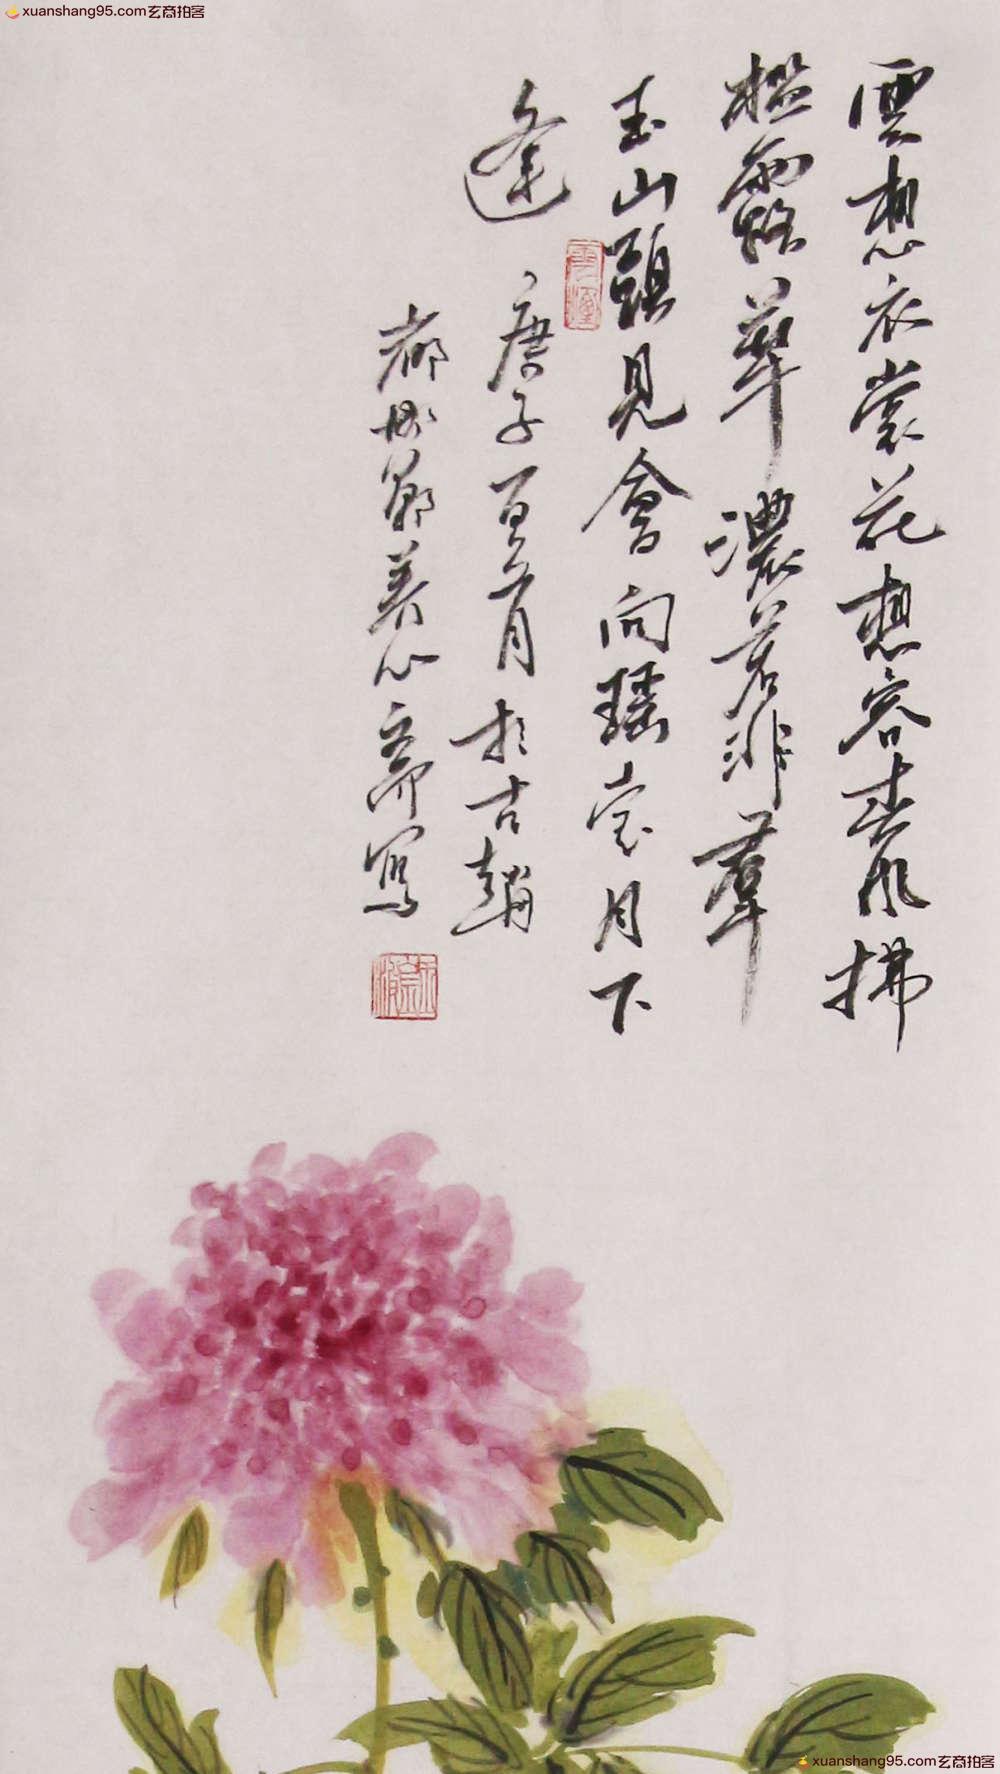 xuanshang95.com玄商拍客
雲想衣裳花想容春風拂
檻露華濃若非羣
玉山頭見會向瑤台月下
逢
庚子百六月於古趙
鄭養心齋寫
xuanshang95.com玄商拍客